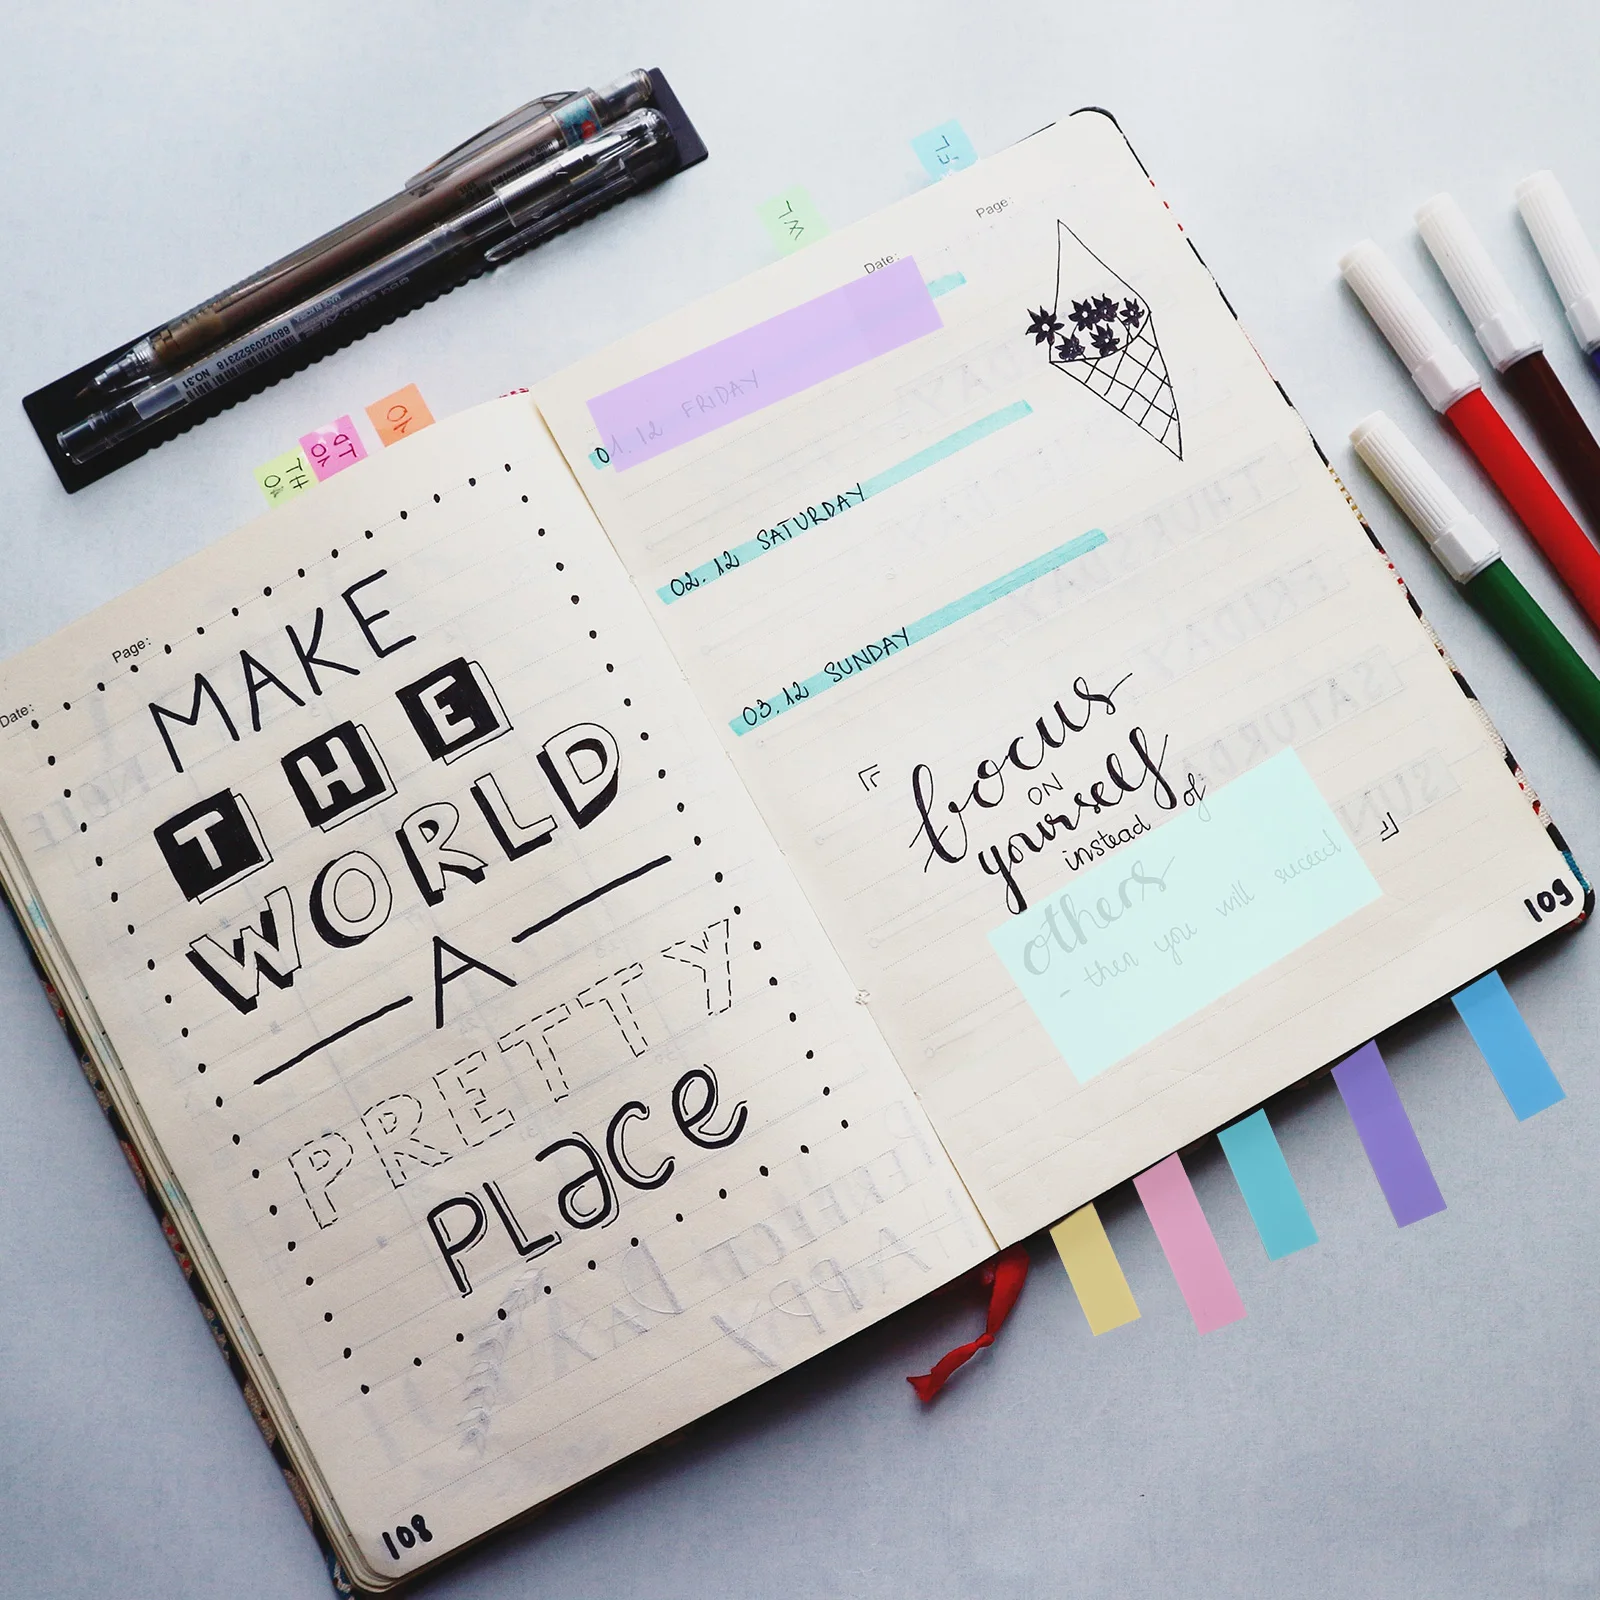 Date:
Page:
MAKE
THE
WORLD
A
PRETTY
PLace
108
Page:
Date:
01.12 FRIDAY
02.12 SATURDAY
03.12 SUNDAY
focus
ON
yourself
instead of:
others
- then you will suceed
109
8802203522318 NO.31